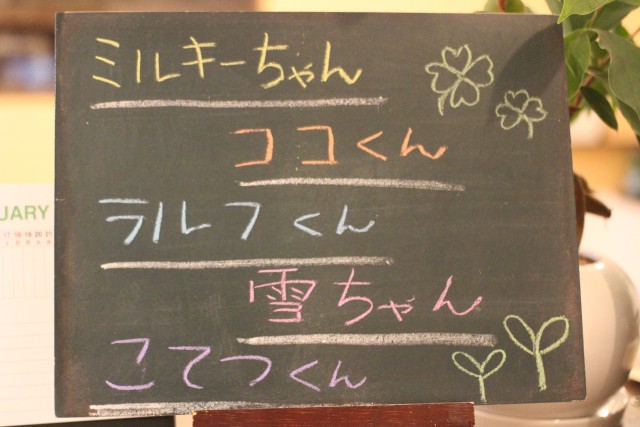 ミルキーちゃん
ココくん
ラルフくん
雪ちゃん
こてつくん
UARY
17 18 19 20 21